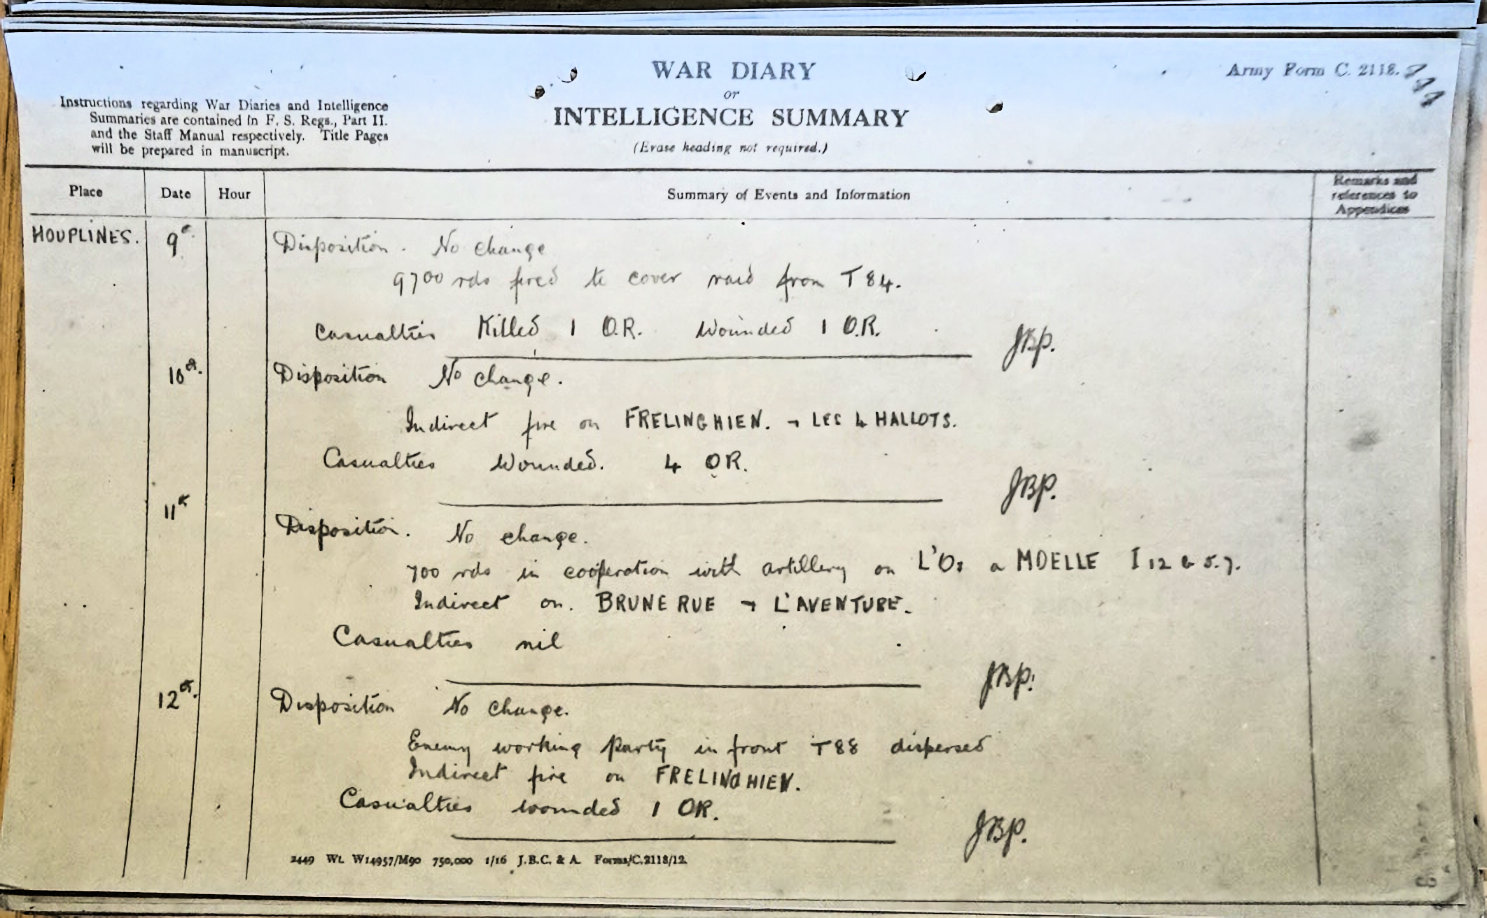 WAR DIARY
or
INTELLIGENCE SUMMARY
(Erase heading not required.)
Army Form C. 2118.
Instructions regarding War Diaries and Intelligence
Summaries are contained in F. S. Regs., Part II.
and the Staff Manual respectively. Title Pages
will be prepared in manuscript.
Place Date Hour Summary of Events and Information Remarks and references to Appendices
HOUPLINES. 9th Disposition. No change
9700 rds fired to cover raid from T 84.
Casualties Killed 1 O.R. Wounded 1 O.R.
JBP.
10th. Disposition No change.
Indirect fire on FRELINGHIEN. + LES 4 HALLOTS.
Casualties Wounded. 4 OR.
JBP.
11th Disposition. No change.
700 rds in cooperation with artillery on L'Os a MOELLE I 12 b 5.7.
Indirect on. BRUNE RUE + L'AVENTURE.
Casualties nil
JBP.
12th. Disposition No change.
Enemy working party in front T88 dispersed
Indirect fire on FRELINGHIEN.
Casualties wounded 1 OR.
JBP.
2449 Wt. W14957/M90 750,000 1/16 J.B.C. & A. Forms/C.2118/12.